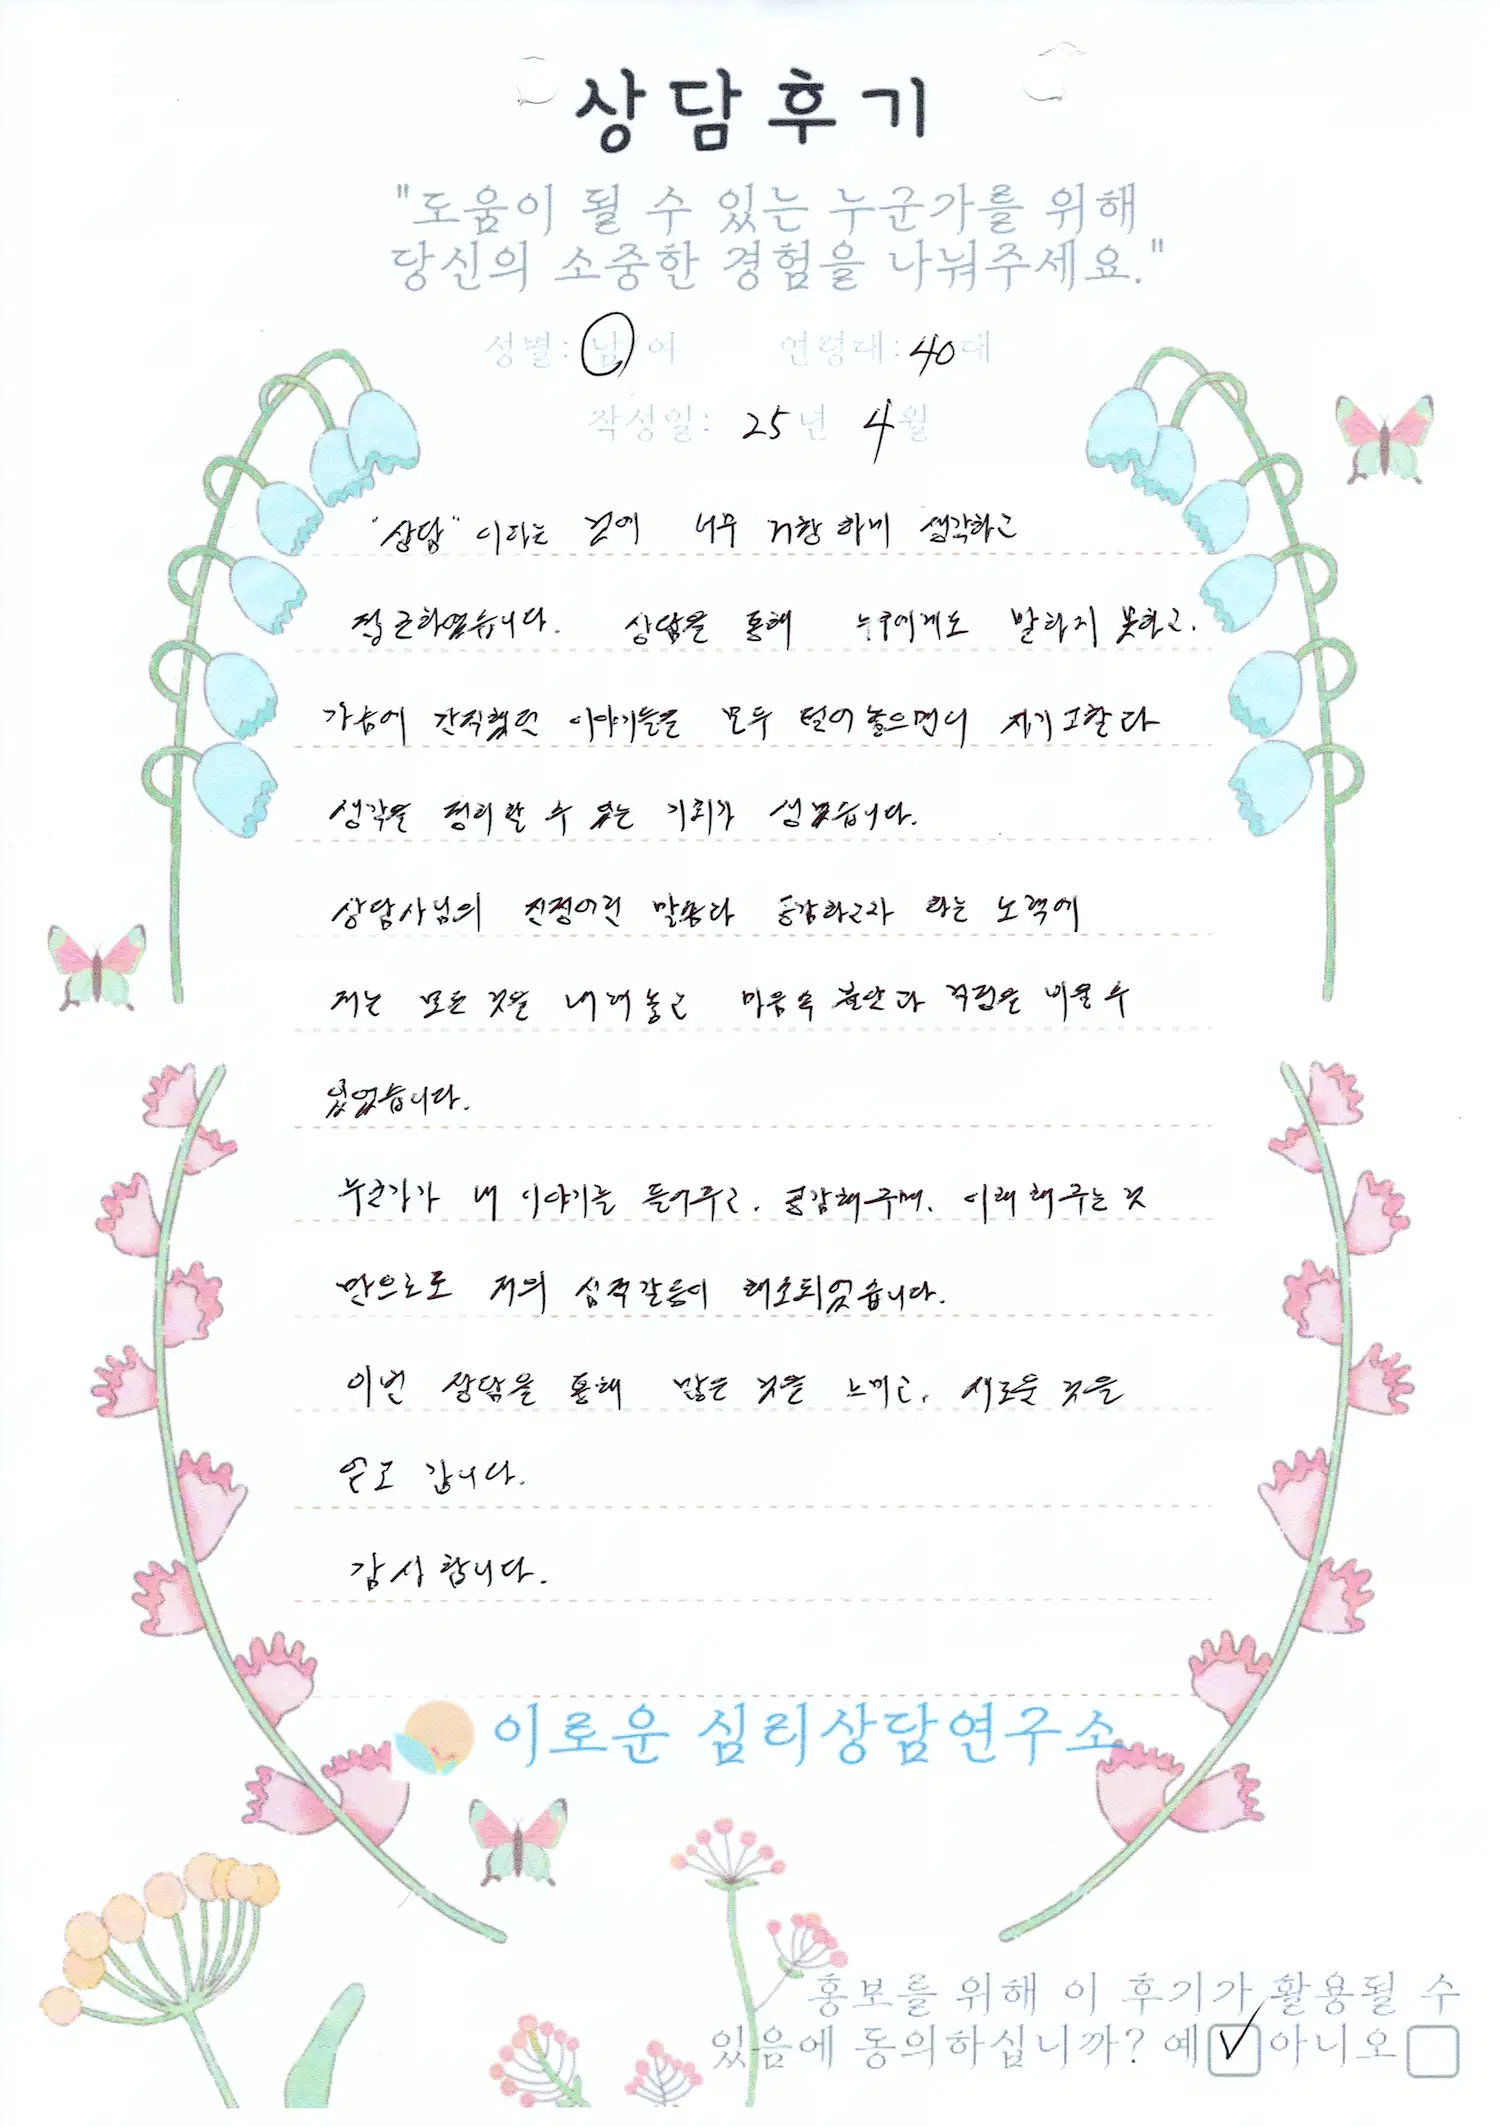 상담후기
"도움이 될 수 있는 누군가를 위해
당신의 소중한 경험을 나눠주세요."
성별: 남/여 연령대: 40대
작성일: 25년 4월
"상담" 이라는 것에 너무 거창하게 생각하고
접근하였습니다. 상담을 통해 누구에게도 말하지 못하고,
가슴에 간직했던 이야기들을 모두 털어놓으면서 자기고찰과
생각을 정리할 수 있는 기회가 생겼습니다.
상담사님의 진정어린 말씀과 공감하고자 하는 노력에
저는 모든 것을 내려놓고 마음속 불안과 걱정을 비울 수
있었습니다.
누군가가 내 이야기를 들어주고, 공감해주며, 이해해주는 것
만으로도 저의 심적갈등이 해소되었습니다.
이번 상담을 통해 많은 것을 느끼고, 새로운 것을
얻고 갑니다.
감사합니다.
이로운 심리상담연구소
홍보를 위해 이 후기가 활용될 수
있음에 동의하십니까? 예 아니오